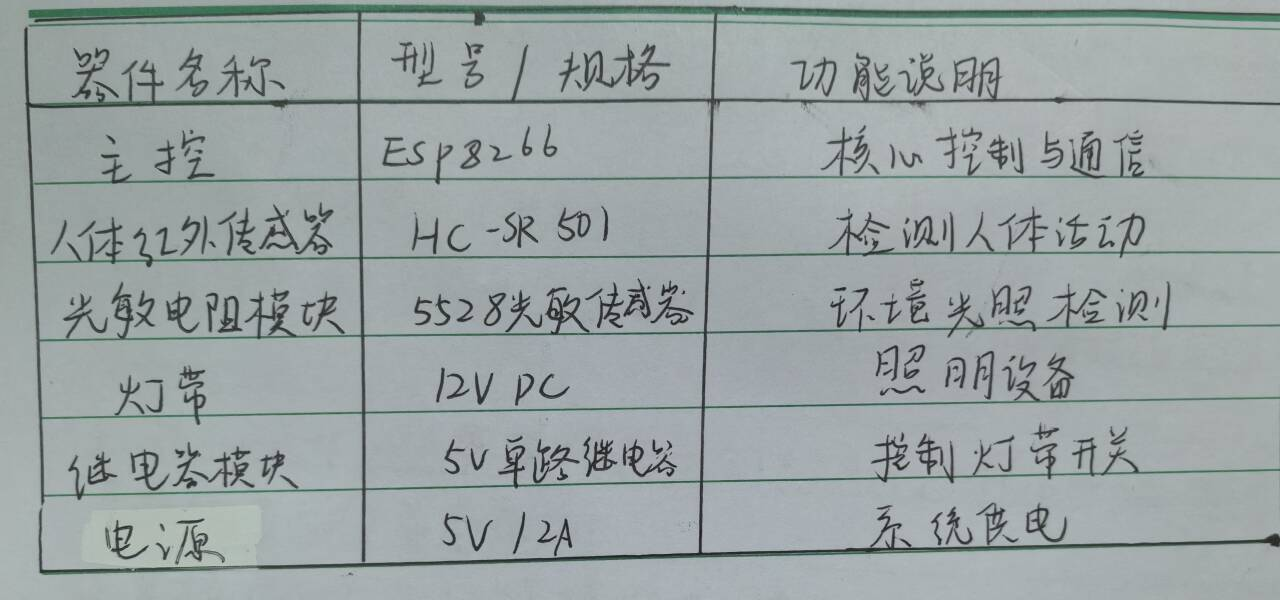 器件名称 型号/规格 功能说明
主控 ESp8266 核心控制与通信
人体红外传感器 HC-SR501 检测人体活动
光敏电阻模块 5528光敏传感器 环境光照检测
灯带 12V DC 照明设备
继电器模块 5V单路继电器 控制灯带开关
电源 5V/2A 系统供电